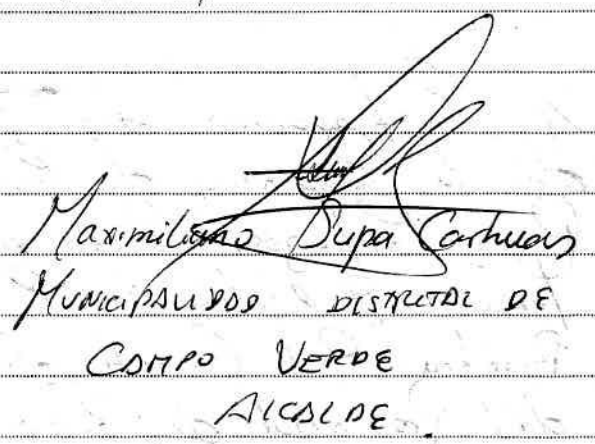 Maximiliano Supa Carhuas
MUNICIPALIDAD DISTRITAL DE
CAMPO VERDE
ALCALDE.